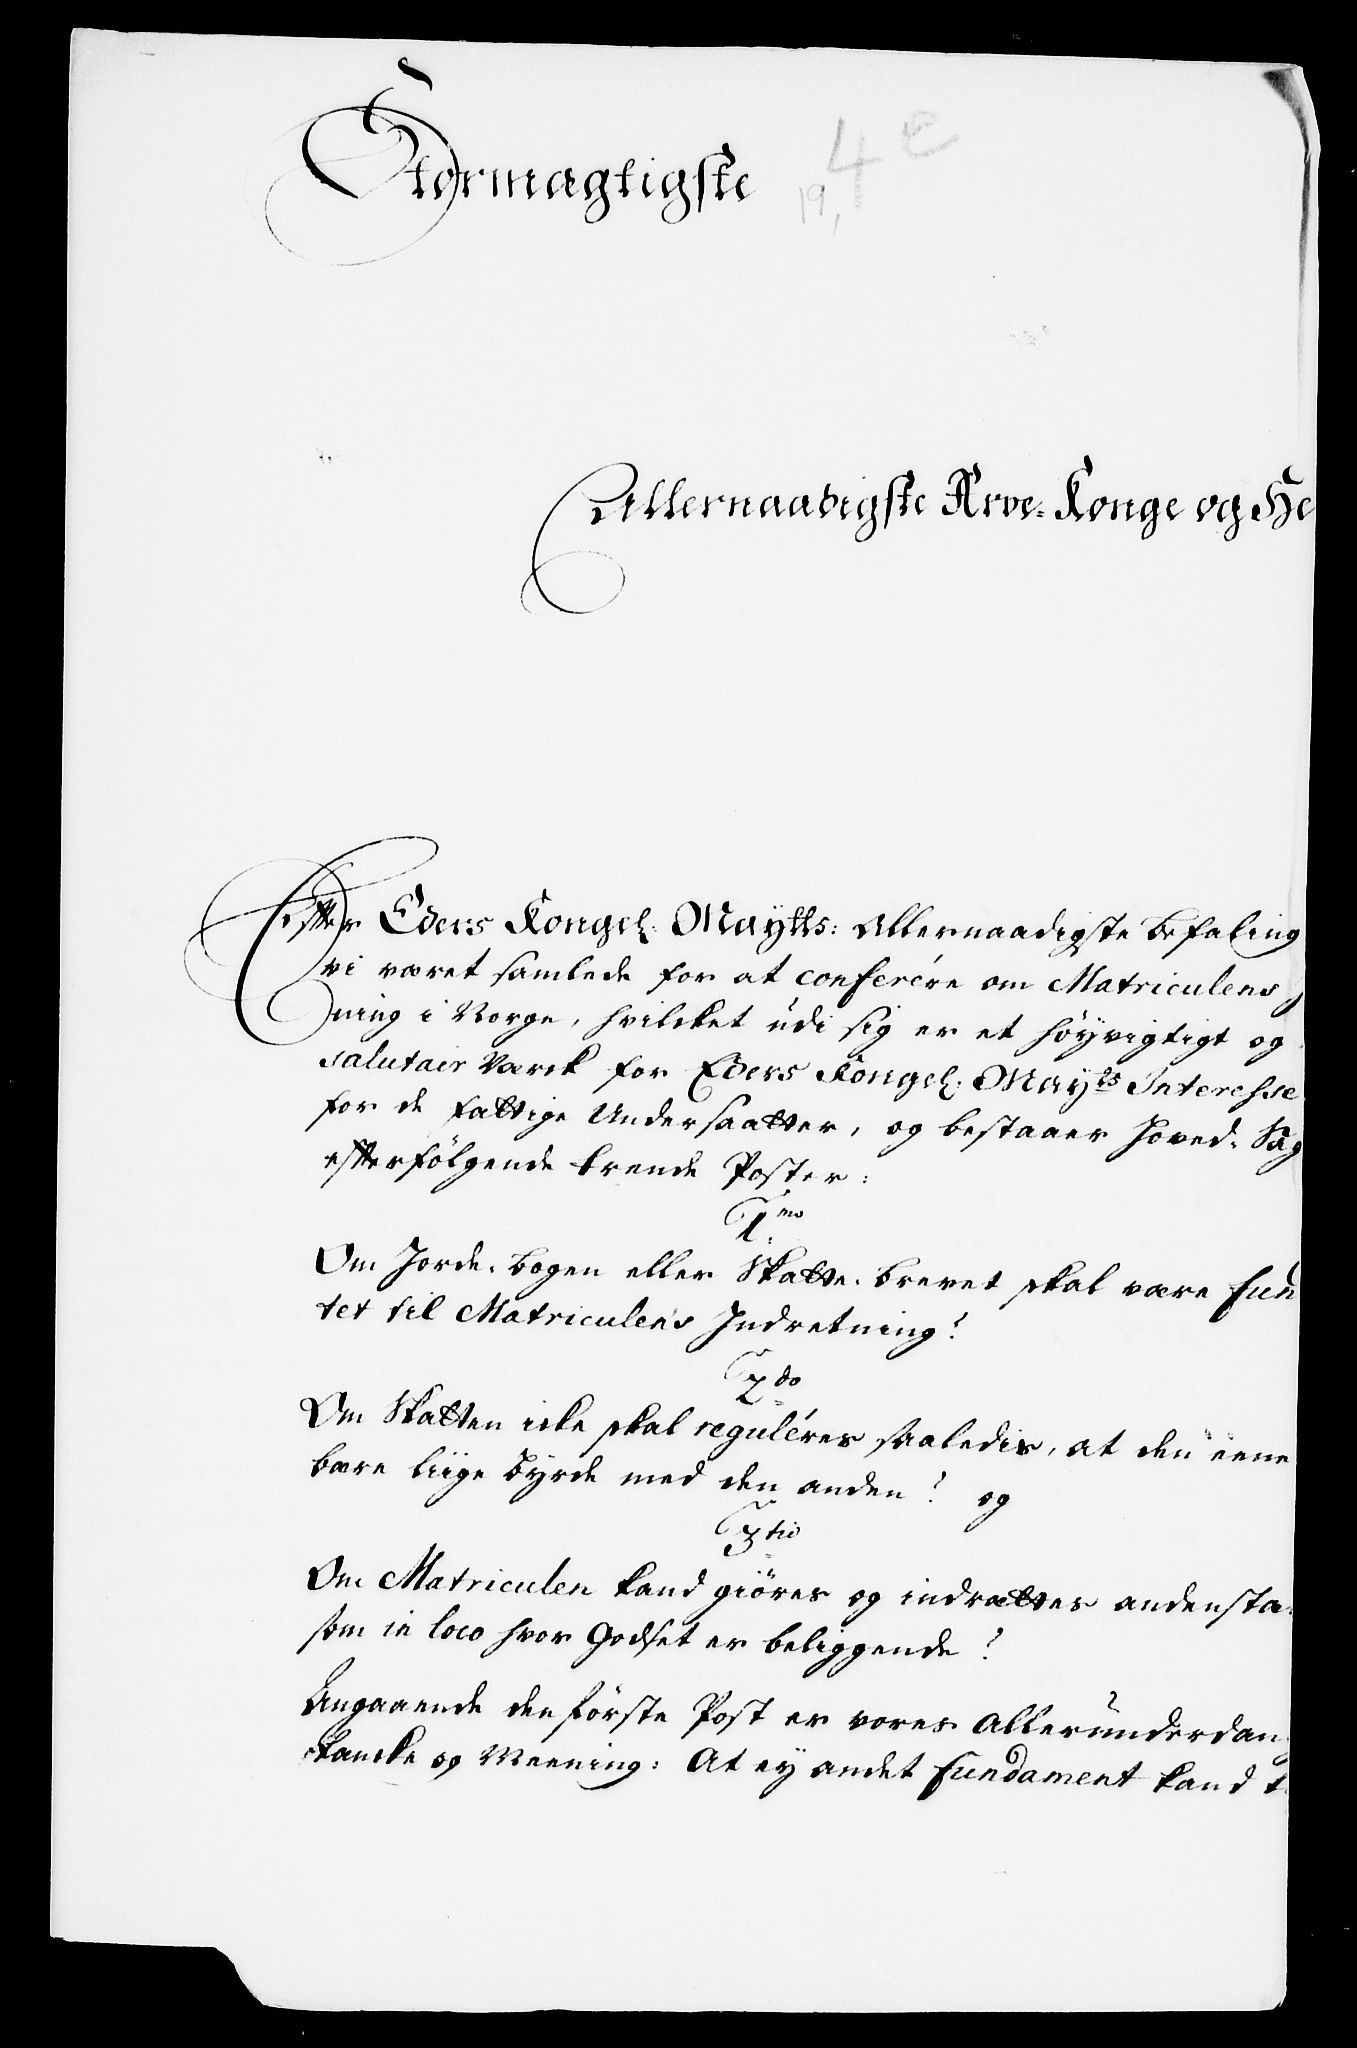 Stormægtigste
4 e
19,
Allernaadigste Arve-Konge og He
Effter Eders Kongel. Mayts: Allernaadigste befaling
vi været samlede for at conferére om Matriculens
ning i Norge, hvilcket udi sig er et höyvigtigt og
salutair Værck for Eders Kongel. Mayts Interesse
for de fattige Undersaatter, og bestaaer Hoved-Sag
effterfölgende trende Poster:
1mo
Om Jorde-bogen eller Skatte-brevet skal være fun
tet til Matriculens Indretning?
2do
Om Skatten icke skal reguléres saaledis, at den eene
bære liige Byrde med den anden? og
3tio
Om Matriculen kand giöres og indrættes andensta
som in loco hvor Godset er beliggende?
Angaaende den förste Post er vores Allerunderdan
tancke og Meening: At ey andet fundament kand